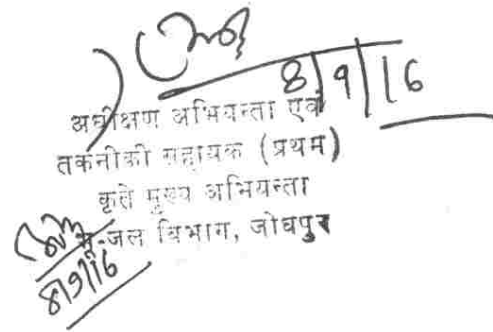 8/9/16
अधीक्षण अभियन्ता एवं
तकनीकी सहायक (प्रथम)
कृते मुख्य अभियन्ता
भू-जल विभाग, जोधपुर
8/9/16